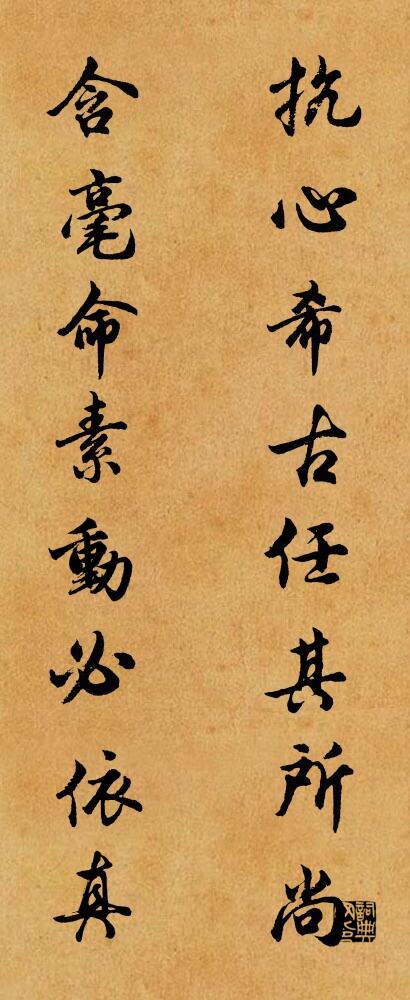 抗心希古任其所尚
含毫命素動必依真